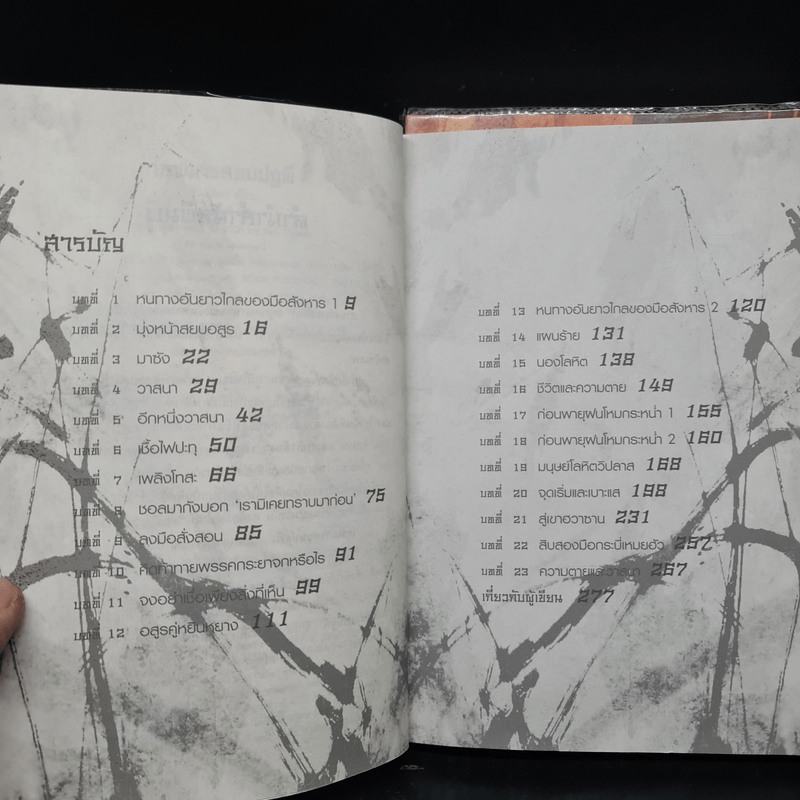 สารบัญ
บทที่ 1 หนทางอันยาวไกลของมือสังหาร 1 9
บทที่ 2 มุ่งหน้าสยบอสูร 16
บทที่ 3 มาซัง 22
บทที่ 4 วาสนา 29
บทที่ 5 อีกหนึ่งวาสนา 42
บทที่ 6 เชื้อไฟปะทุ 50
บทที่ 7 เพลิงโทสะ 66
บทที่ 8 ชอลมากังบอก 'เรามิเคยทราบมาก่อน' 75
บทที่ 9 ลงมือสั่งสอน 85
บทที่ 10 คิดท้าทายพรรคกระยาจกหรือไร 91
บทที่ 11 จงอย่าเชื่อเพียงสิ่งที่เห็น 99
บทที่ 12 อสูรคู่หยินหยาง 111
บทที่ 13 หนทางอันยาวไกลของมือสังหาร 2 120
บทที่ 14 แผนร้าย 131
บทที่ 15 นองโลหิต 138
บทที่ 16 ชีวิตและความตาย 149
บทที่ 17 ก่อนพายุฝนโหมกระหน่ำ 1 155
บทที่ 18 ก่อนพายุฝนโหมกระหน่ำ 2 160
บทที่ 19 มนุษย์โลหิตวิปลาส 168
บทที่ 20 จุดเริ่มและเบาะแส 198
บทที่ 21 สู่เขาฮวาซาน 231
บทที่ 22 สิบสองมือกระบี่เหมยฮัว 257
บทที่ 23 ความตายและวาสนา 267
เกี่ยวกับผู้เขียน 277